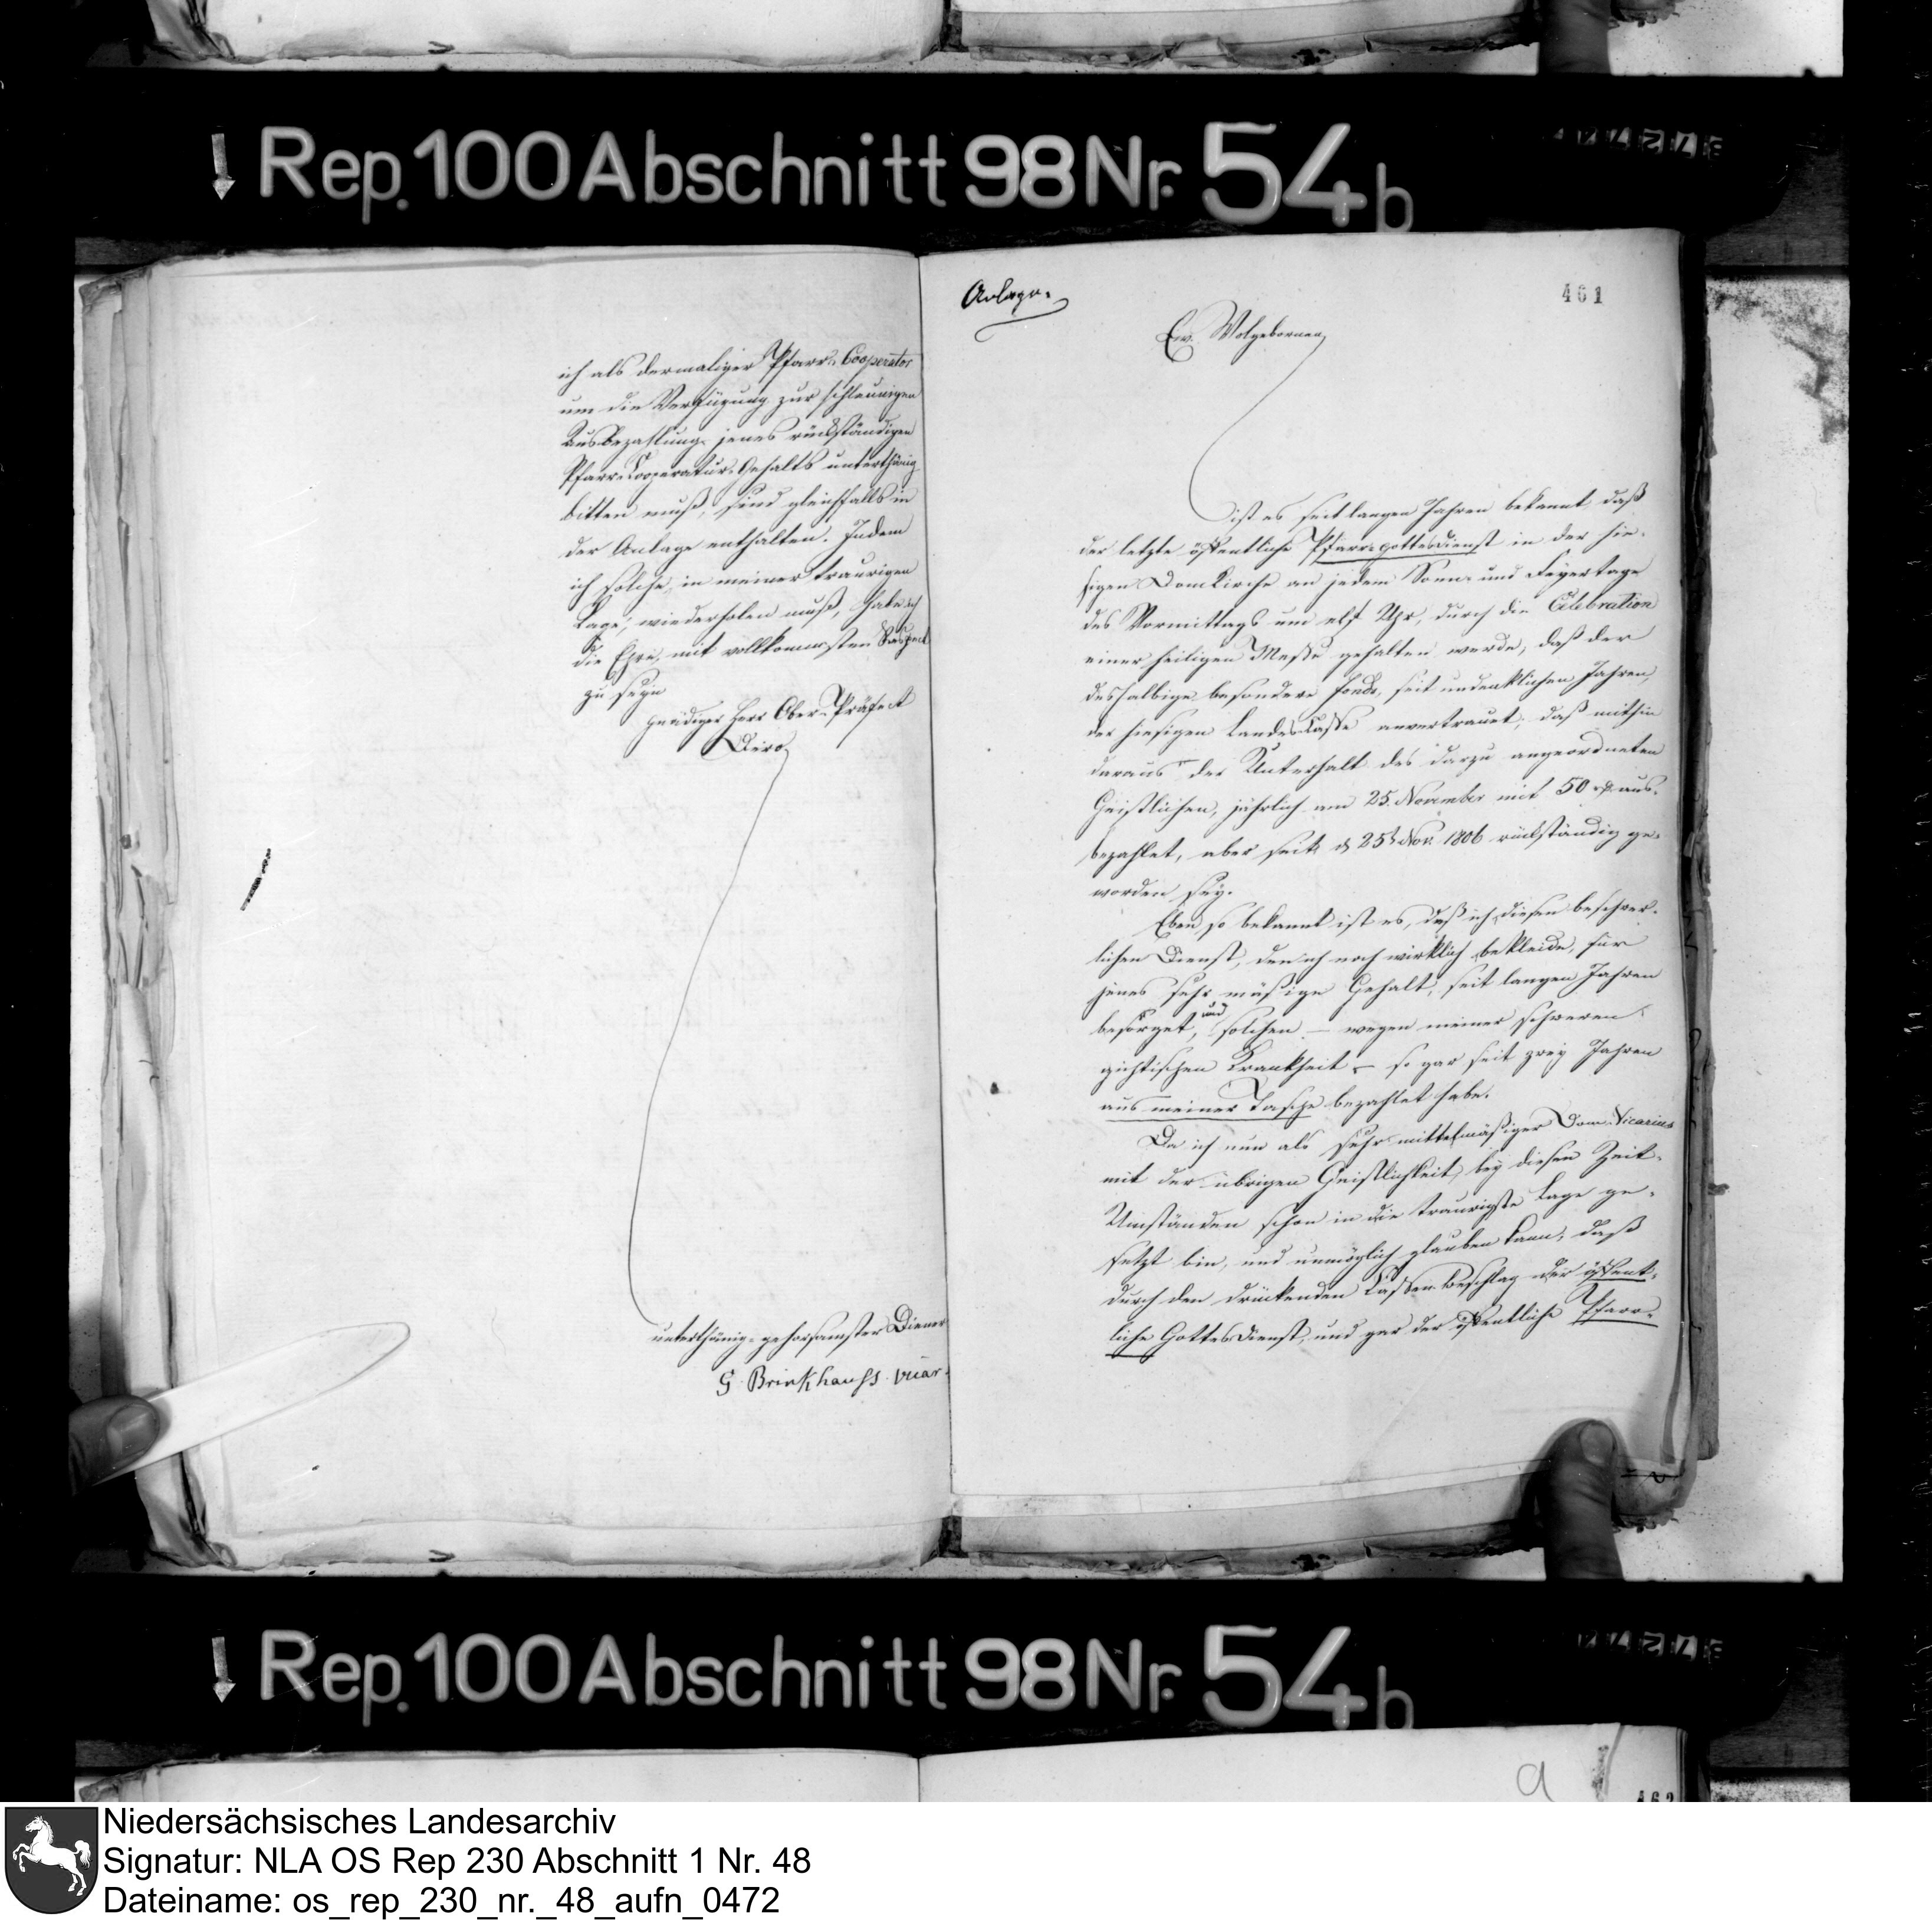 Rep. 100 Abschnitt 98 Nr. 54 b
ich als dermaliger Pfarr-Cooperator
um die Verfügung zur schleunigen
Ausbezahlung jenes rückständigen
Pfarr-Cooperatur-Gehalts unterthänig
bitten muß, sind gleichfalls in
der Anlage enthalten. Indem
ich solche, in meiner traurigen
Lage, wiederholen muß, habe ich
die Ehre, mit vollkommsten Respect
zu seyn
gnädiger Herr Ober-Präfect
Dero
unterthänig-gehorsamster Diener
G. Brinkhauss. vicar.
Anlage.
461
Ew. Wolgebornen
ist es seit langen Jahren bekannt, daß
der letzte öffentliche Pfarr-gottesdienst in der hie-
sigen Domkirche an jedem Sonn- und Feyertage
des Vormittags um elf Uhr, durch die Celebration
einer heiligen Messe gehalten werde, daß der
desfalsige besondere Fonds, seit undenklichen Jahren,
der hiesigen Landes-Casse anvertrauet, daß mithin
daraus der Unterhalt des darzu angeordneten
Geistlichen, jährlich am 25. November mit 50 rt aus-
bezahlet, aber seit d 25t Nov. 1806 rückständig ge-
worden sey.
Eben so bekannt ist es, daß ich diesen beschwer-
lichen Dienst, den ich noch wirklich bekleide, für
jenes sehr mäßige Gehalt, seit langen Jahren
besorget, und solchen – wegen meiner schweren
gichtischen Krankheit – so gar seit zwey Jahren
aus meiner Tasche bezahlet habe.
Da ich nun als sehr mittelmäßiger Dom-Vicarius
mit der übrigen Geistlichkeit, bey diesen Zeit-
Umständen schon in die traurigste Lage ge-
setzt bin, und unmöglich glauben kann, daß
durch den drückenden Cassen-beschlag der öffent-
liche Gottesdienst, und gar der öffentliche Pfarr-
Rep. 100 Abschnitt 98 Nr. 54 b
a
462
Niedersächsisches Landesarchiv
Signatur: NLA OS Rep 230 Abschnitt 1 Nr. 48
Dateiname: os_rep_230_nr._48_aufn_0472